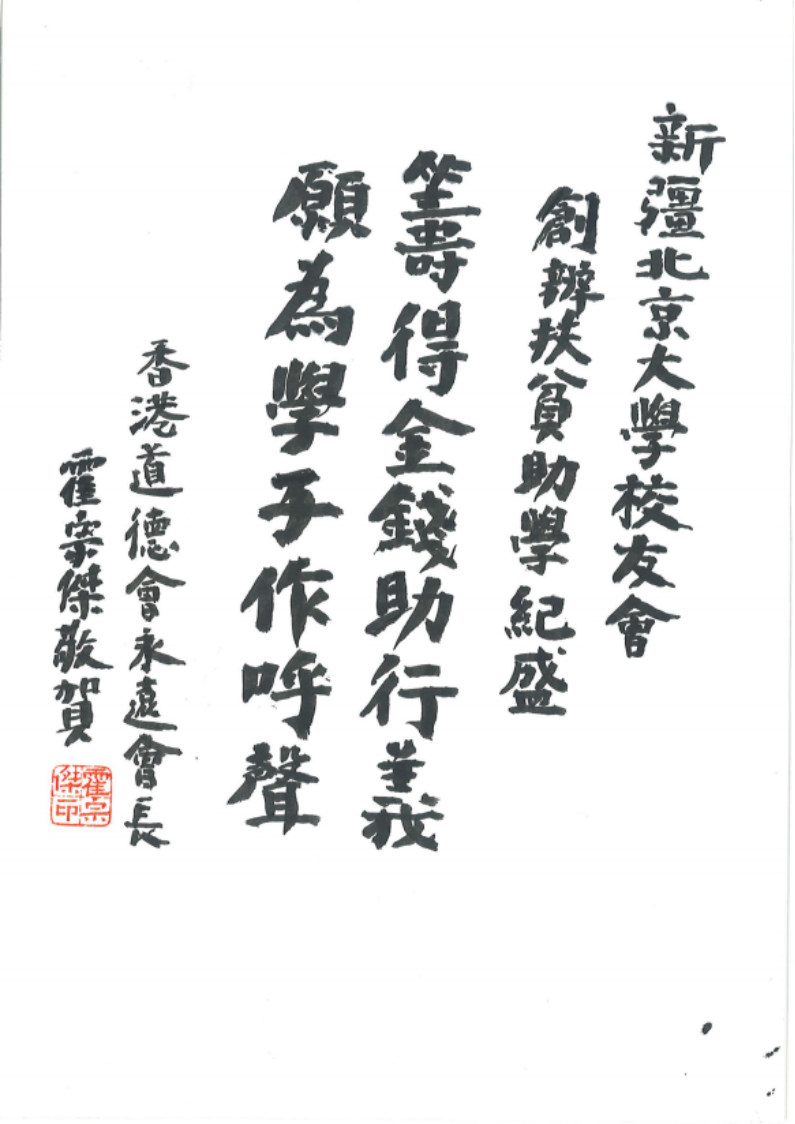 新疆北京大學校友會
創辦扶貧助學紀盛
籌得金錢助行義
願為學子作呼聲
香港道德會永遠會長
霍宗傑敬賀
霍宗傑印